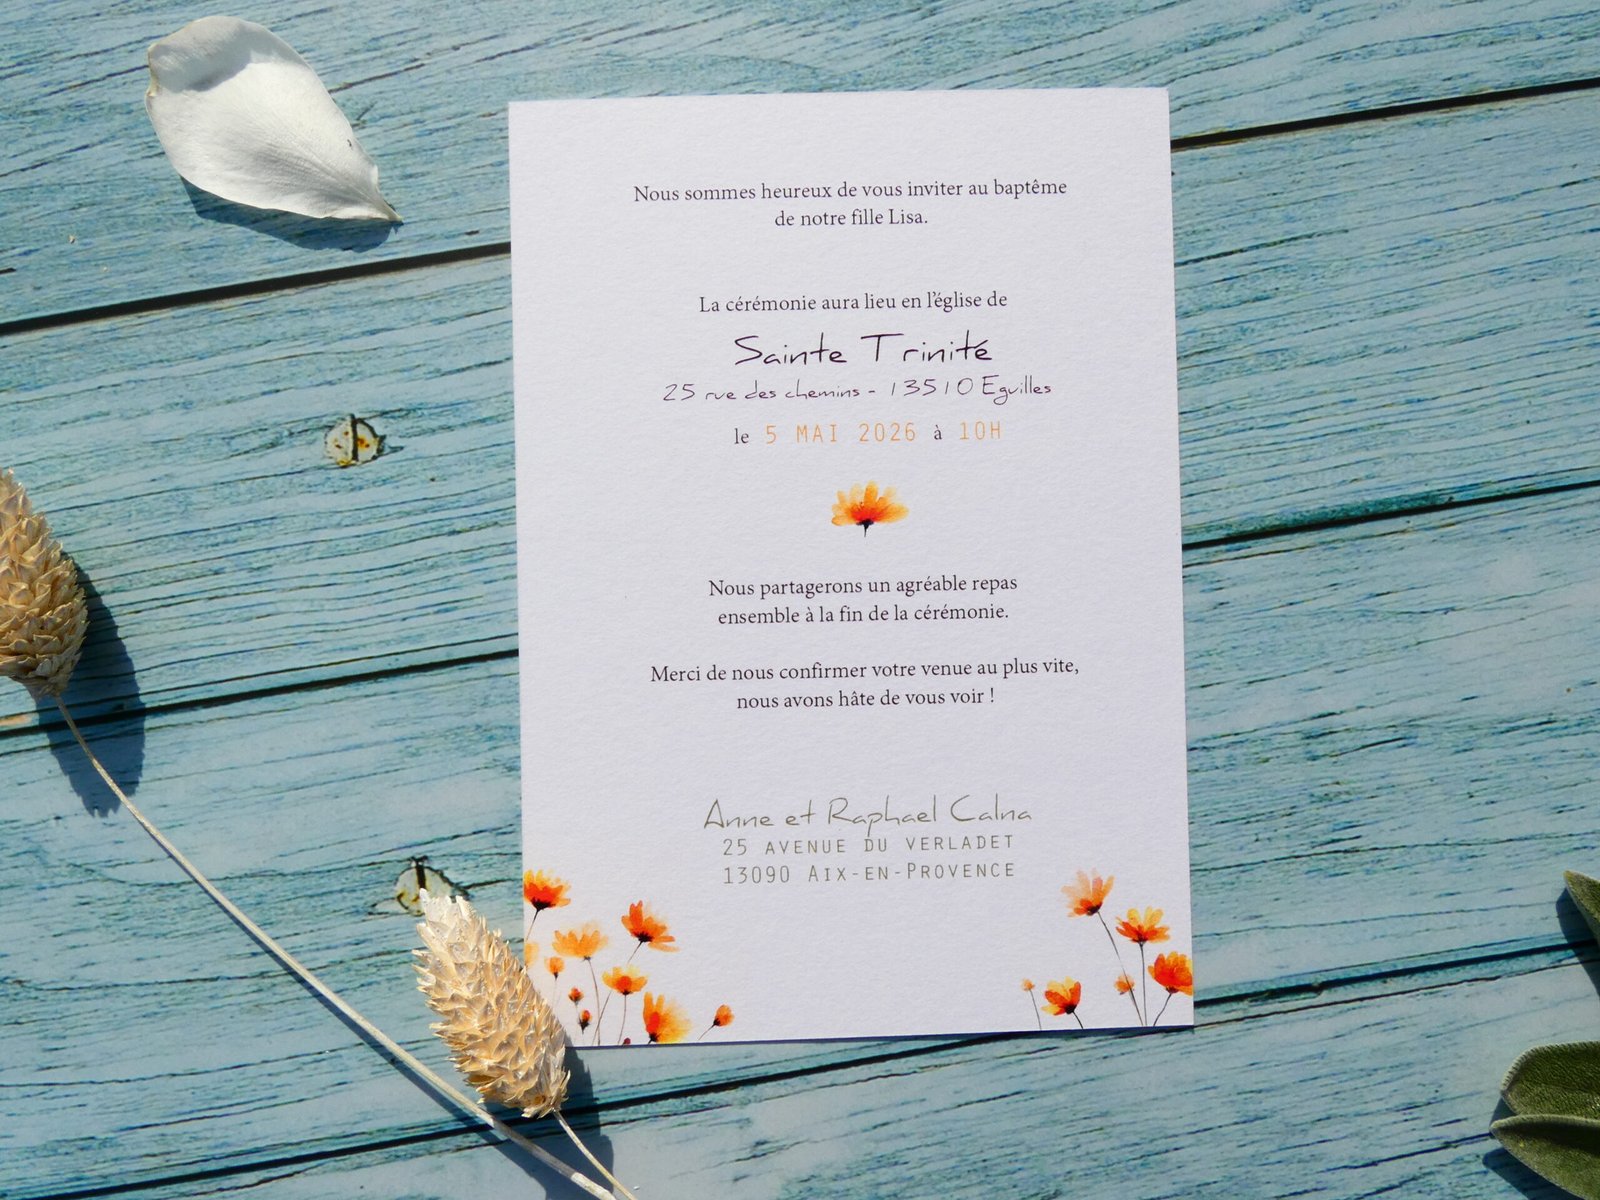 Nous sommes heureux de vous inviter au baptême
de notre fille Lisa.
La cérémonie aura lieu en l'église de
Sainte Trinité
25 rue des chemins - 13510 Eguilles
le 5 MAI 2026 à 10H
Nous partagerons un agréable repas
ensemble à la fin de la cérémonie.
Merci de nous confirmer votre venue au plus vite,
nous avons hâte de vous voir !
Anne et Raphael Calna
25 AVENUE DU VERLADET
13090 AIX-EN-PROVENCE